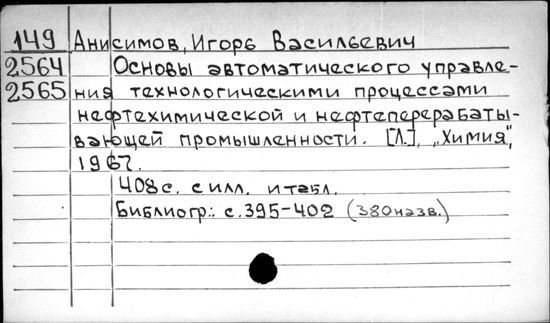 149 Анисимов, Игорь Васильевич
2564 Основы автоматического управле-
2565 ния технологическими процессами
нефтехимической и нефтеперерабаты-
вающей промышленности. [Л.], „Химия",
1967.
408с. с илл. и табл.
Библиогр.: с. 395-402 (380назв.)